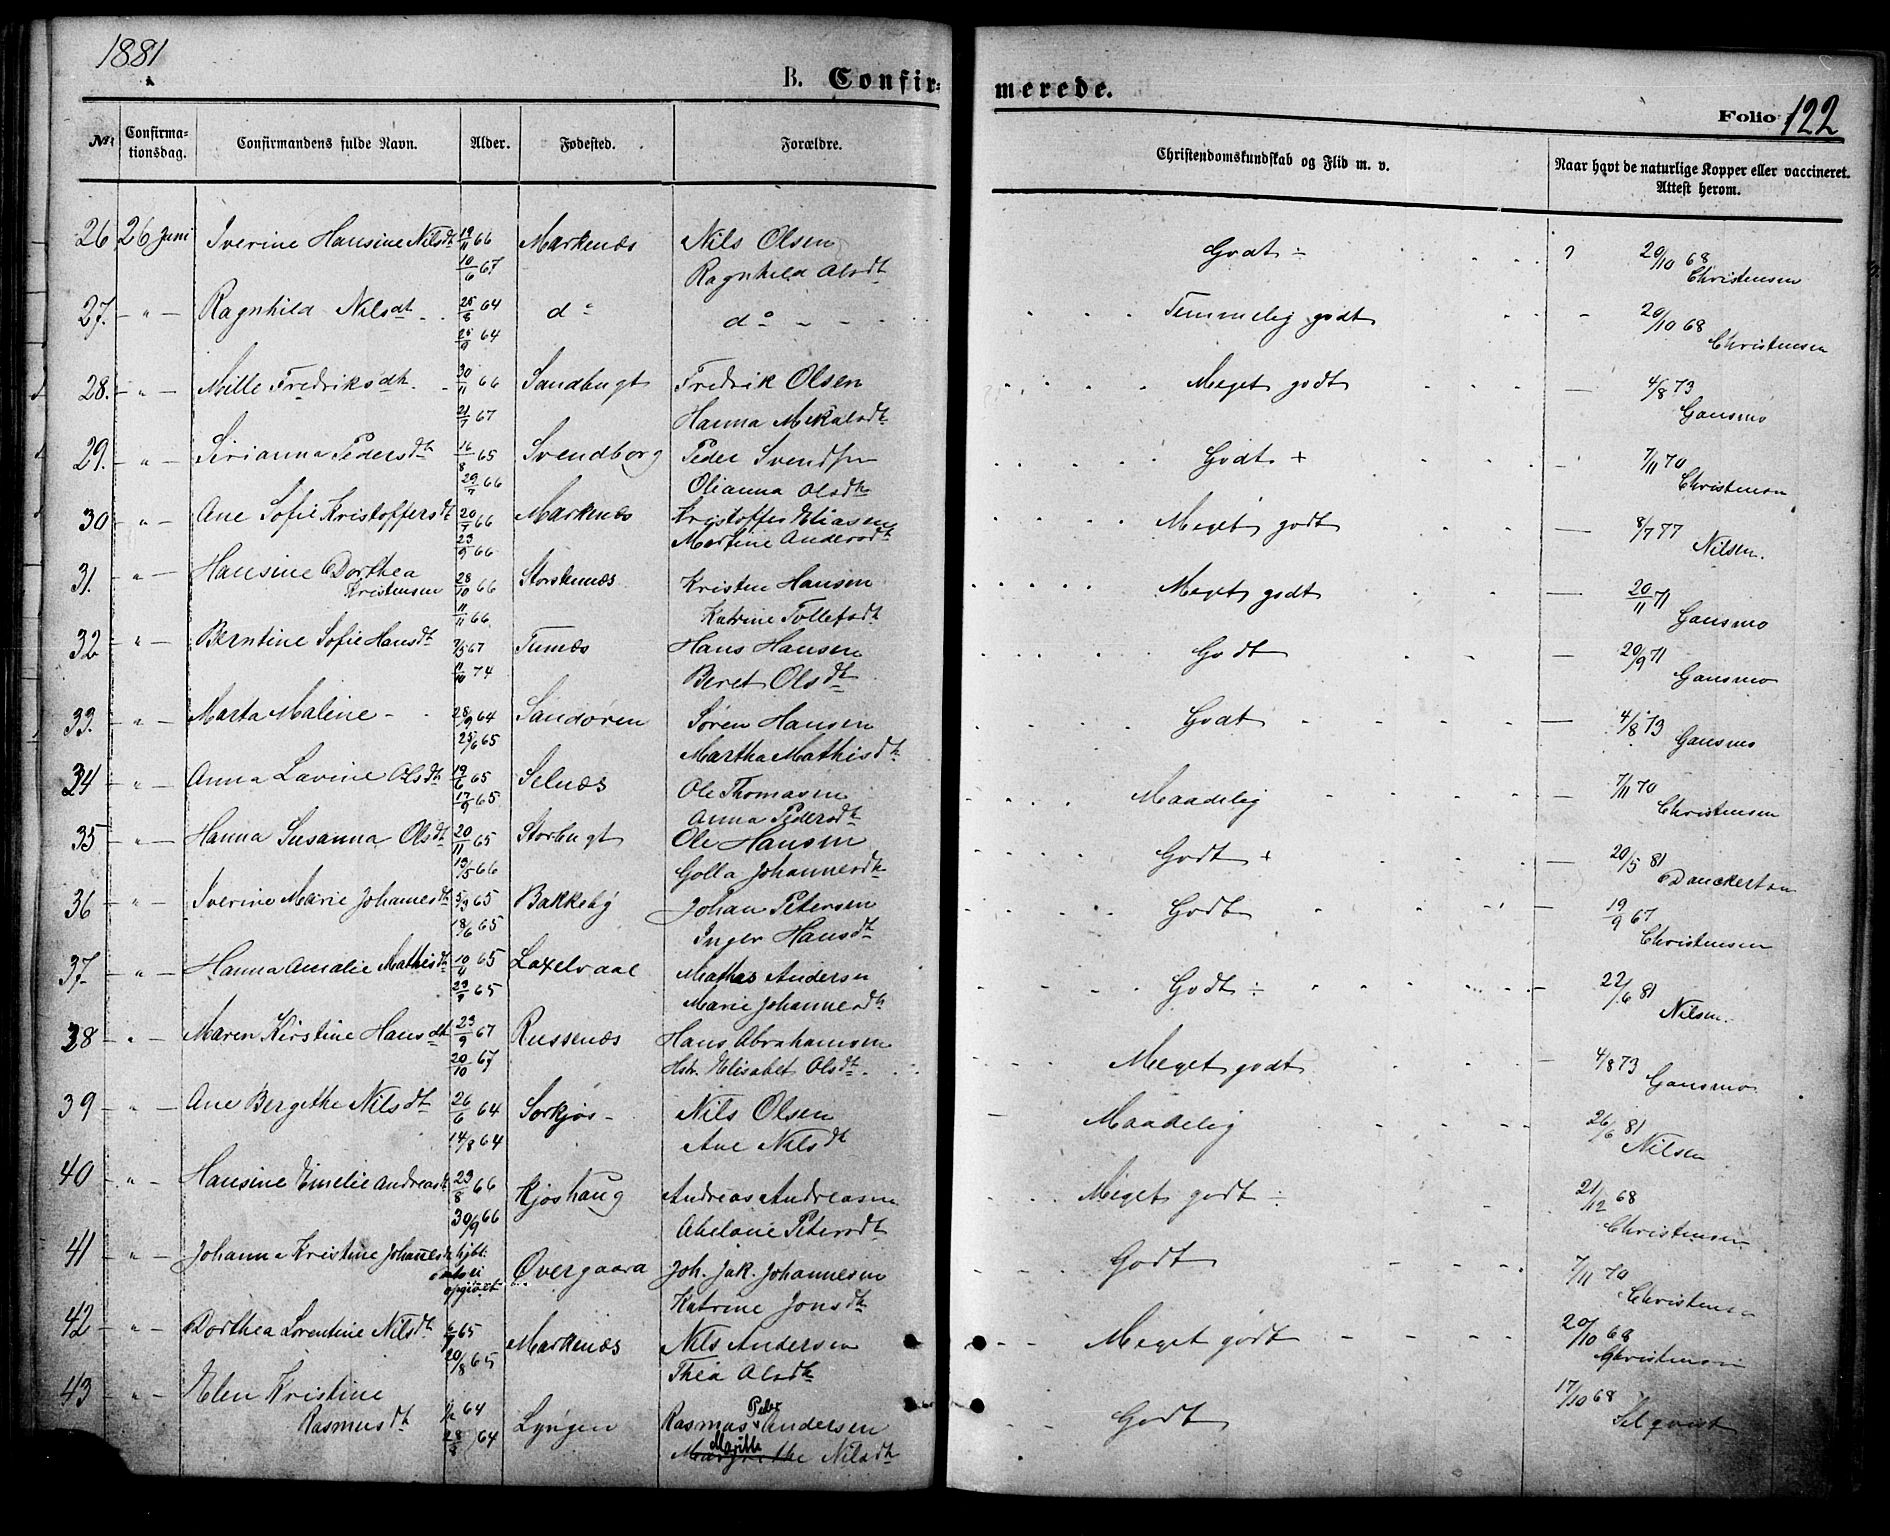 1881
B. Confir=
merede.
Folio 122
No. Confirma=tionsdag. Confirmandens fulde Navn. Alder. Fødested. Forældre. Christendomskundskab og Flid m. v. Naar havt de naturlige Kopper eller vaccineret. Attest herom.
26 26 Juni Iverine Hansine Nilsdt 19/11 66 Markenæs Nils Olsen Godt ÷ 20/10 68
10/6 67 Ragnhild Olsdt Christensen
27. " Ragnhild Nilsdt 25/8 64 do do Temmelig godt 20/10 68
25/9 64 Christensen
28. " Mille Fredriksdt. 30/11 66 Sandbugt Fredrik Olsen Meget godt 4/8 73
21/7 67 Hanna Mikalsdt Gausmo
29. " Sirianna Pedersdt 16/8 65 Svendborg Peder Svendsen Godt + 7/11 70
29/7 66 Olianna Olsdt Christensen
30 " Ane Sofie Kristoffersdt 20/7 66 Markenæs Kristoffer Eliasen Meget godt 8/7 77
23/9 66 Martine Andersdt Nilsen.
31. " Hansine Dorthea Kristensen 28/10 66 Storstenæs Kristen Hansen Meget godt 20/11 71
11/11 66 Katrine Tollefsdt Gausmo
32 " Berntine Sofie Hansdt 7/5 67 Tunæs Hans Hansen Godt 20/9 71
11/10 74 Beret Olsdt Gausmo
33. " Marta Maline 28/9 64 Sandøren Søren Hansen Godt 4/8 73
25/6 65 Martha Mathisdt Gausmo
34 " Anna Lavine Olsdt 19/6 65 Selnæs Ole Thomasen Maadelig 7/11 70
17/9 65 Anna Pedersdt Christensen
35 " Hanna Susanna Olsdt 20/11 65 Storbugt Ole Hansen Godt + 20/5 81
13/5 66 Golla Johannesdt Danckertsen
36 " Iverine Marie Johannesdt 5/3 65 Bakkeby Johan Petersen Godt 19/9 67
18/6 65 Inger Hansdt Christensen
37 " Hanna Amalie Mathisdt 10/4 65 Laxelvdal Mathis Andersen Godt ÷ 22/6 81
23/9 65 Marie Johannesdt Nilsen.
38 " Maren Kirstine Hansdt 23/9 67 Russenæs Hans Abrahamsen Meget godt 4/8 73
20/10 67 Hstr. Elisabet Olsdt. Gausmo
39 " Ane Bergethe Nilsdt 26/6 64 Sørkjos Nils Olsen Maadelig 26/6 81
14/8 64 Ane Nilsdt Nilsen
40 " Hansine Emelie Andreasdt 23/8 66 Kjoshaug Andreas Andreasen Meget godt ÷ 21/12 68
30/9 66 Abelone Petersdt Christensen
41 " Johanna Kristine Johannesdt hjbt. Øvergaard Joh. Jak. Johannesen Godt 7/11 70
dato ei opgivet Katrine Jonsdt Christensen
42 " Dorthea Lorentine Nilsdt 65 Markenæs Nils Andersen Meget godt 20/10 68
20/8 65 Thea Olsdt Christensen
43 " Elen Kristine Rasmusdt 64 Lyngen Rasmus Peder Andersen Godt 17/10 68
28/8 64 Marille Nilsdt Selqvist